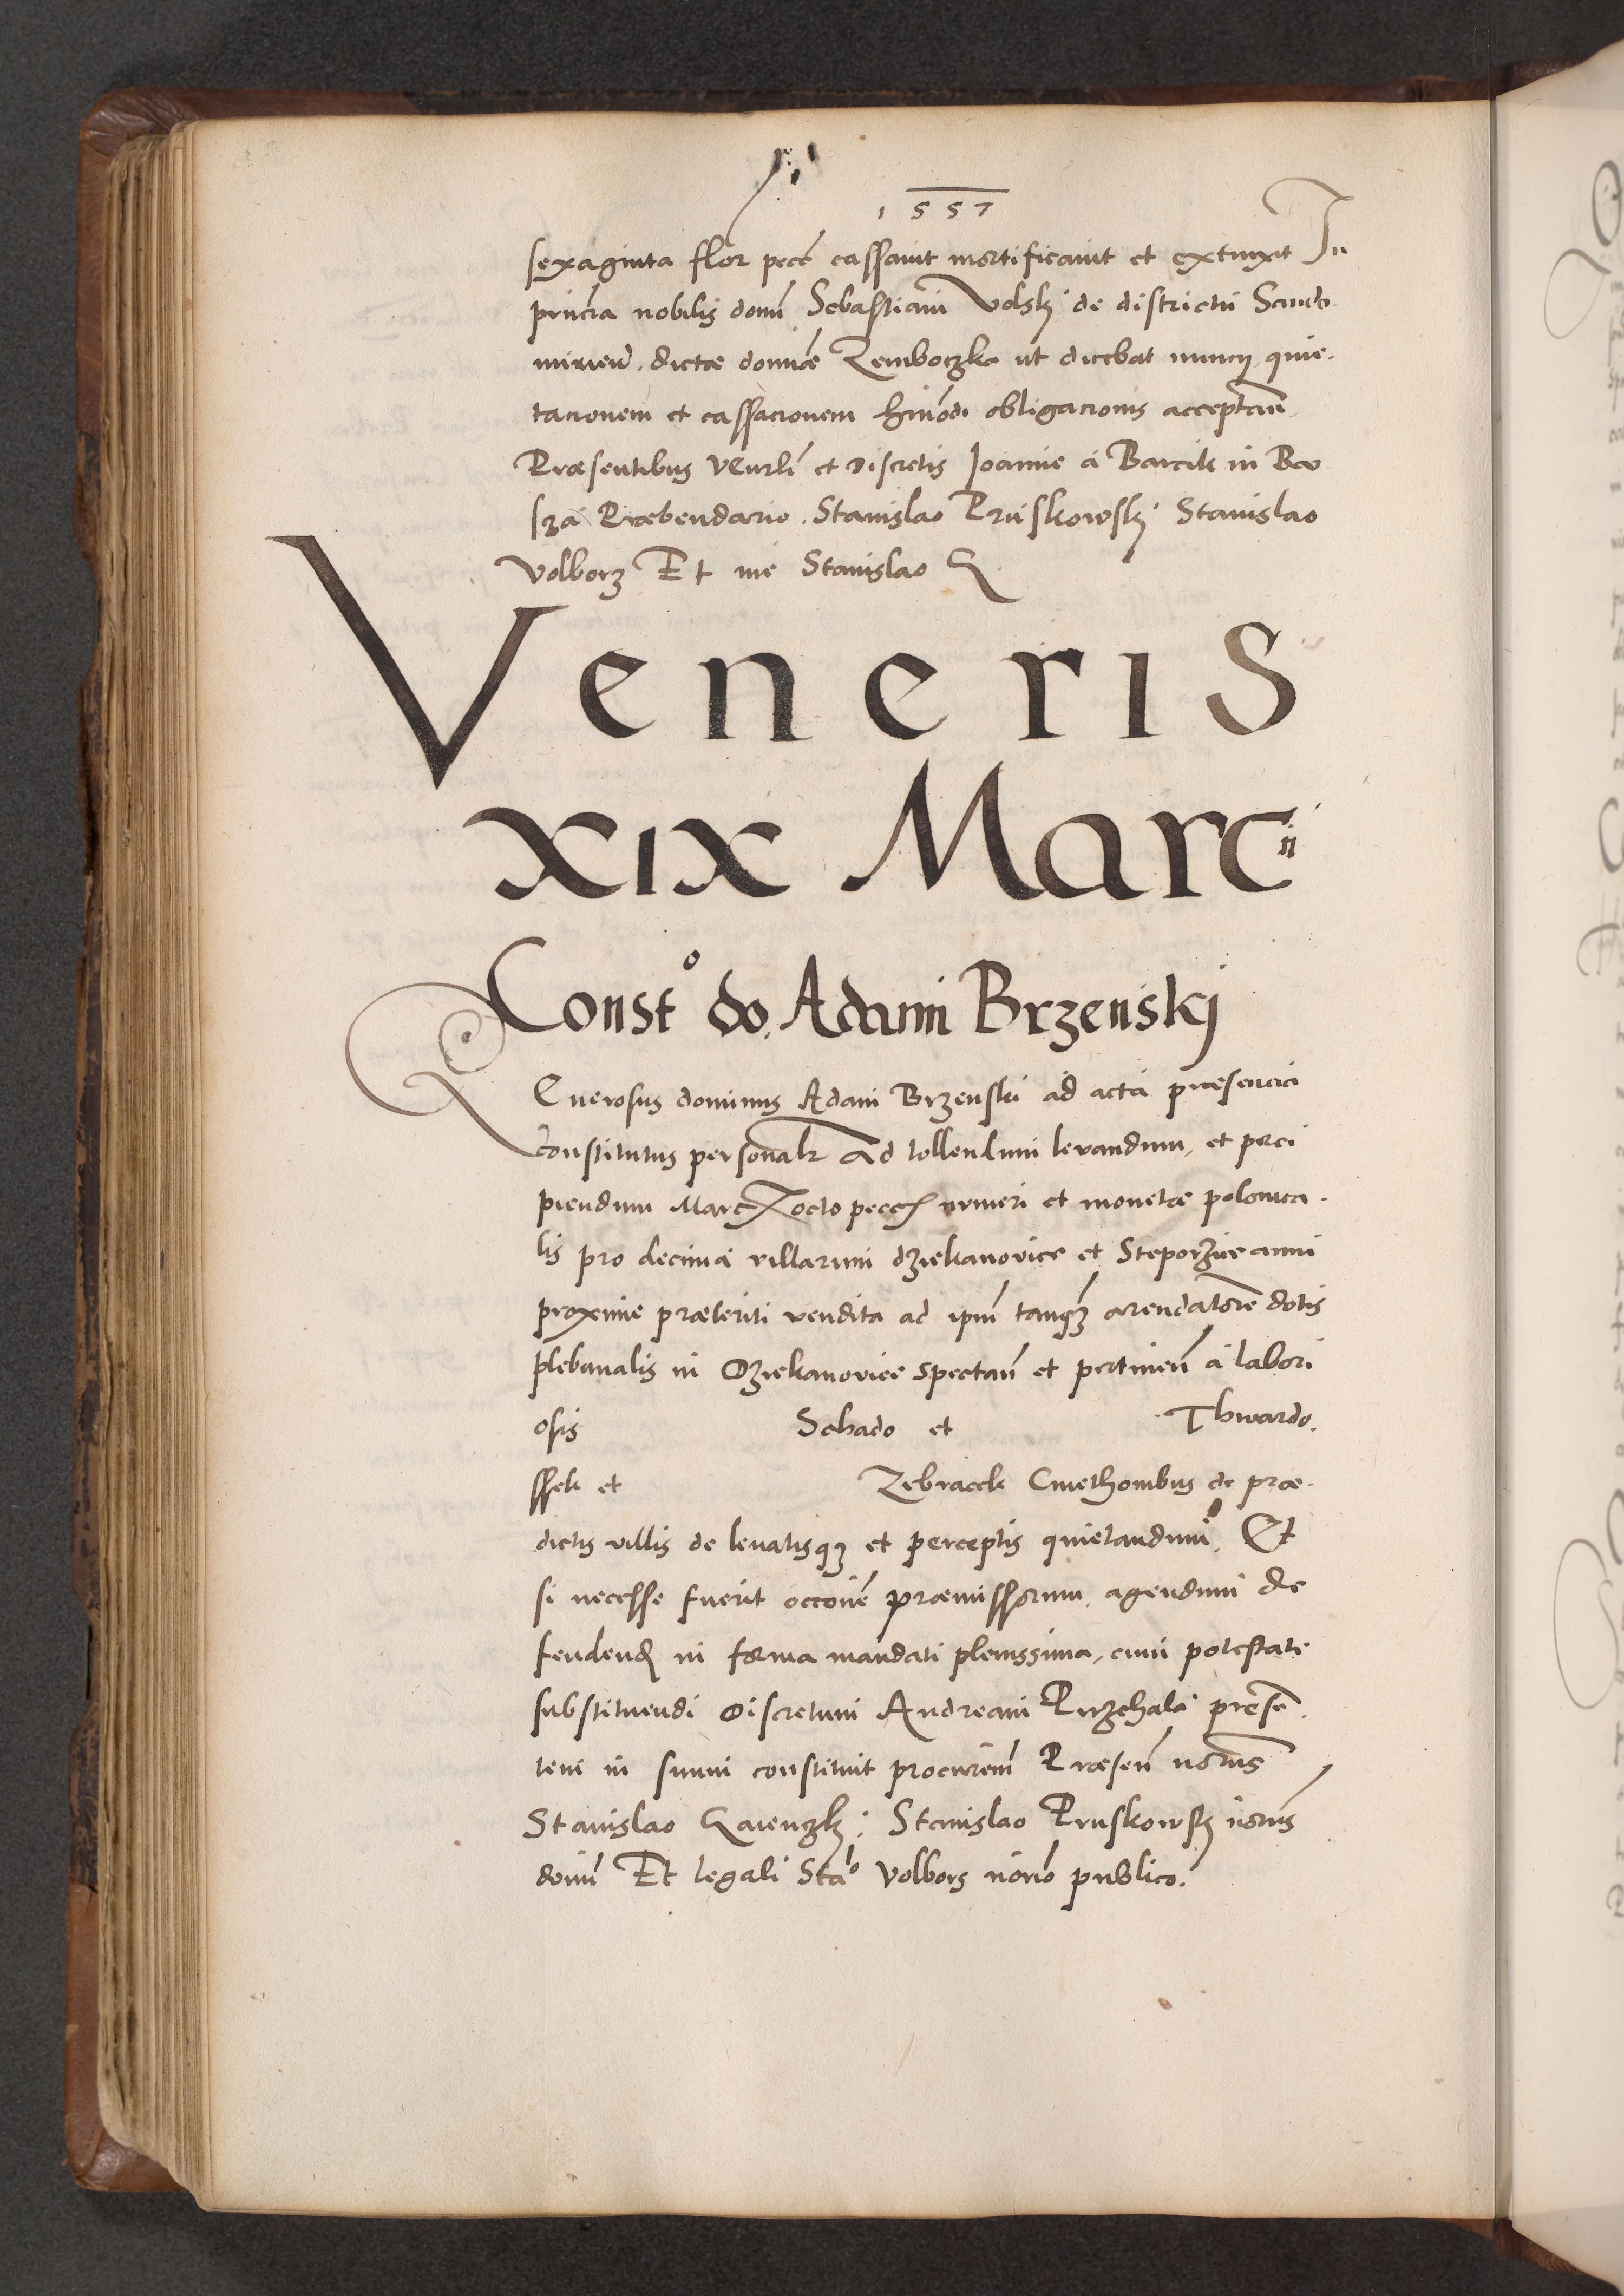 1557
sexaginta flor pecc̄ cassavit mortificavit et extinxit In
prńcia nobilis domī Sebastiani Volskj de districtu Sando
mirieñ. dictæ domnæ Zemboczka ut dicebat nuncij quie-
tacionem et cassacionem hmōdi obligacionis acceptañ
Præsentibus Veńrli et Discretis Joanne a Barcik in
Præbendario. Stanislao Pruskowskj Stanislao
Volborz Et me Stanislao
Veneris
xix Marcii
Constº do. Adami Brzenskj
Generosus dominus Adam Brzenski ad acta præsencia
constitutus personalr Ad tollendum levandum, et perci
piendum Marc octo pecc numeri et monetæ polonica-
lis pro decima villarum dziekanovice et Steporzice anni
proxime præteriti vendita ad ipm̄ tanqz arendatorē dotis
plebanalis in Dziekanovice spectañ et pertineñ a labori
osis Schado et Thwardo.
ssek et Zebracek Cmethonibus de præ-
dictis villis de levatisqz et perceptis quietandum. Et
si necesse fuerit occōne præmissorum, agendum de
fendend in forma mandati plenissima, cum potestate
substituendi Discretum Andream præsē.
tem in suum constituit procurem̄ Præseñ
Stanislao Stanislao Pruskowskj
domī Et legali Sta͞o Volbors notrio publico.